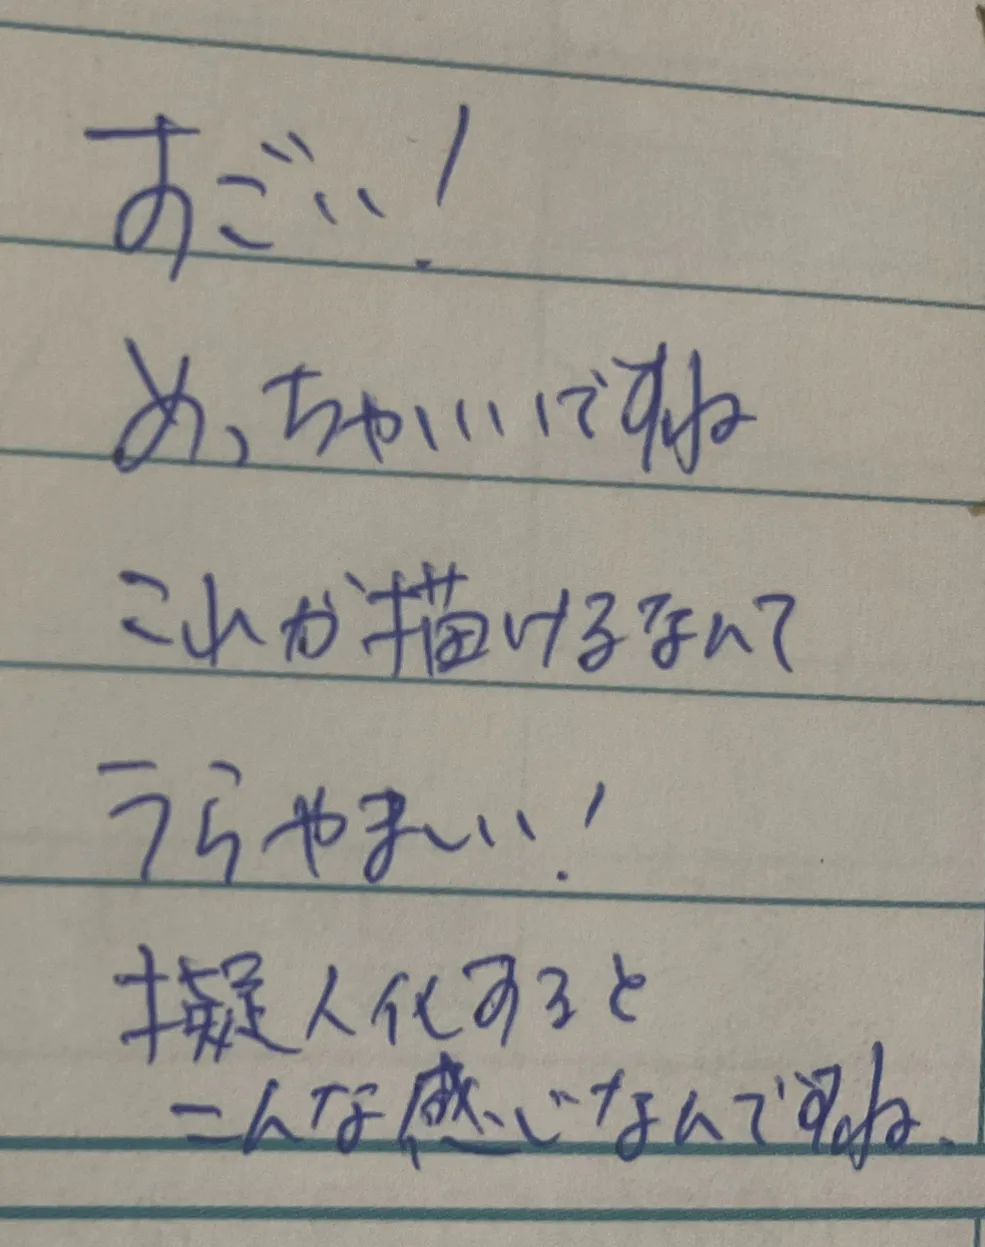 すごい!
めっちゃいいですね
これが描けるなんて
うらやましい!
擬人化すると
こんな感じなんですね